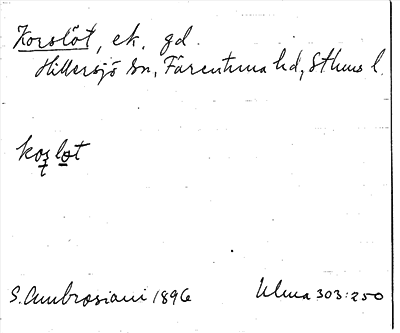 Korslöt, ek. gd.
Hillersjö sn, Färentuna hd, Sthms l.
kos̱lo̱t
t
S. Ambrosiani 1896 Ulma 303:250